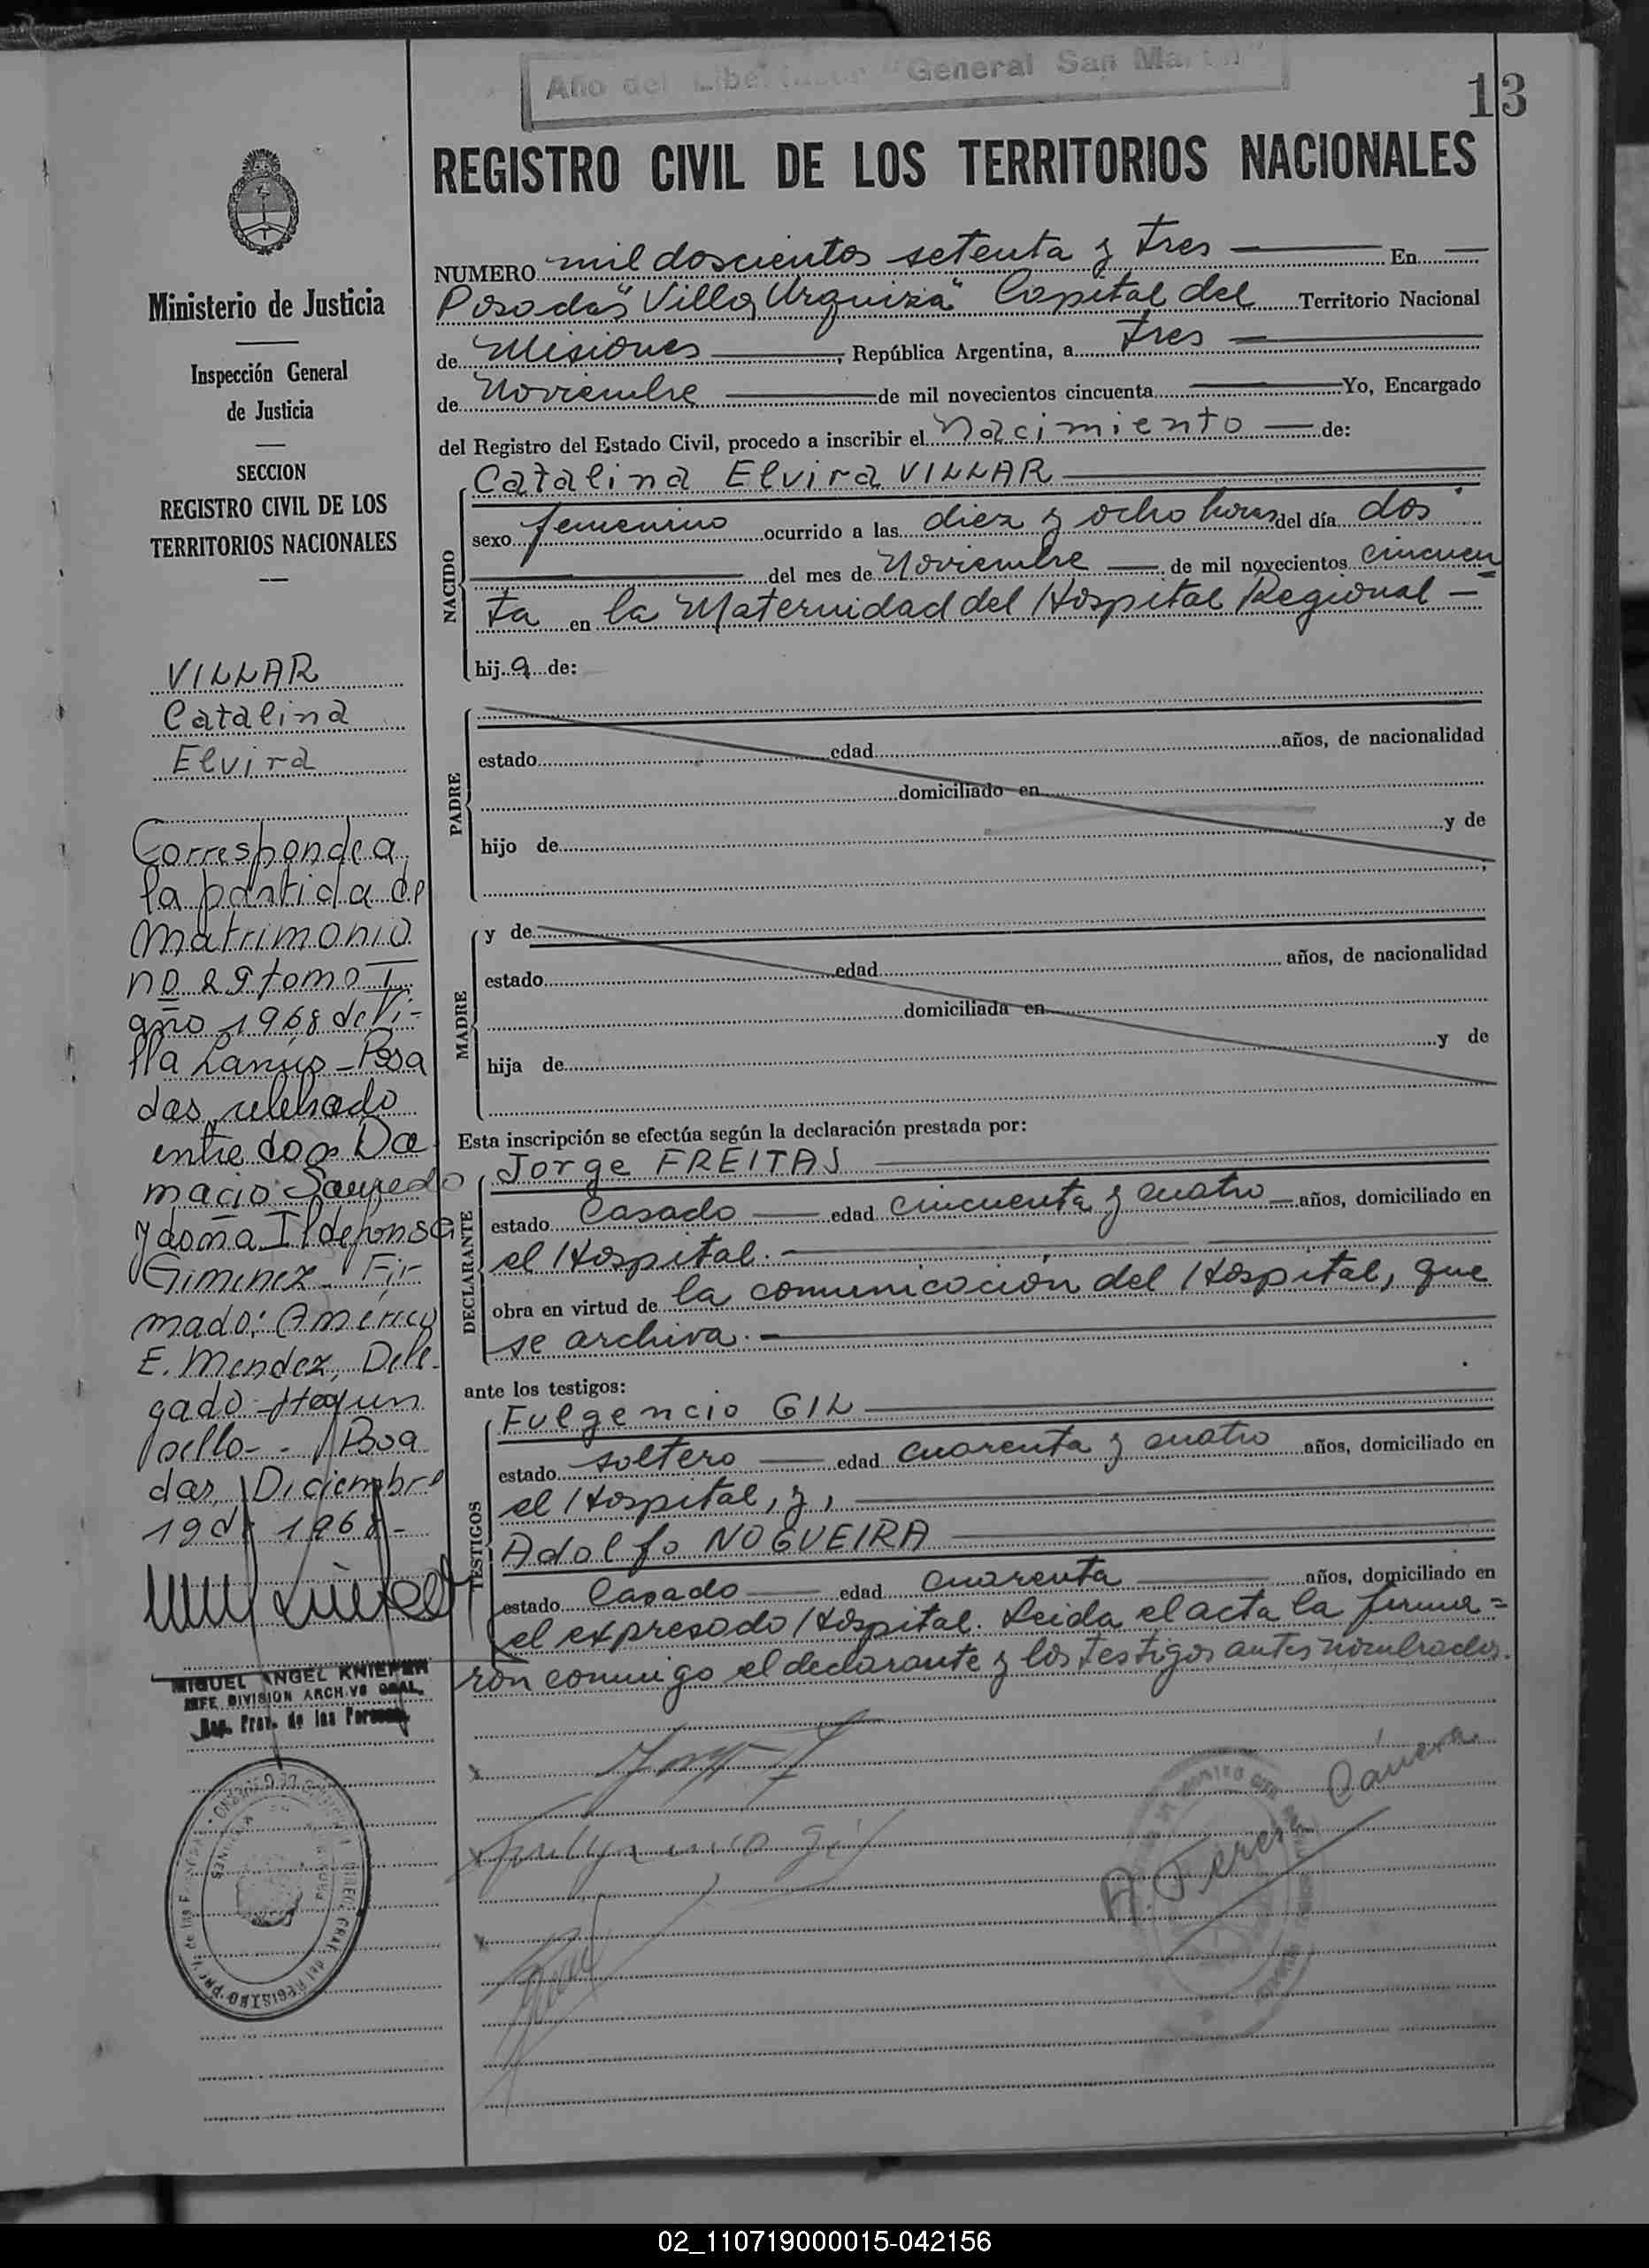 Año del Libertador "General San Martín"
13
REGISTRO CIVIL DE LOS TERRITORIOS NACIONALES
NUMERO mil doscientos setenta y tres En
Posadas "Villa Urquiza" Capital del Territorio Nacional
de Misiones, República Argentina, a tres
de Noviembre de mil novecientos cincuenta Yo, Encargado
del Registro del Estado Civil, procedo a inscribir el Nacimiento de:
NACIDO
Catalina Elvira VILLAR
sexo femenino ocurrido a las diez y ocho horas del día dos
del mes de Noviembre de mil novecientos cincuen
ta en la Maternidad del Hospital Regional
hija de:
PADRE
estado edad años, de nacionalidad
domiciliado en
hijo de y de
MADRE
y de
estado edad años, de nacionalidad
domiciliada en
hija de y de
Esta inscripción se efectúa según la declaración prestada por:
DECLARANTE
Jorge FREITAS
estado Casado edad cincuenta y cuatro años, domiciliado en
el Hospital.
obra en virtud de la comunicación del Hospital, que
se archiva.
ante los testigos:
TESTIGOS
Fulgencio GIL
estado soltero edad cuarenta y cuatro años, domiciliado en
el Hospital, y,
Adolfo NOGUEIRA
estado Casado edad cuarenta años, domiciliado en
el expresado Hospital. Leida el acta la firma=
ron conmigo el declarante y los testigos antes nombrados.
Fulgencio Gil
A. Teresa Cámera
Ministerio de Justicia
Inspección General
de Justicia
SECCION
REGISTRO CIVIL DE LOS
TERRITORIOS NACIONALES
VILLAR
Catalina
Elvira
Corresponde a
la partida de
Matrimonio
nº 29 tomo I
año 1968 de Vi-
lla Lanús - Posa
das celebrado
entre don Da
macio Saucedo
y doña Ildefonsa
Gimenez - Fir
mado: Américo
E. Mendez, Dele-
gado - Hay un
sello - Posa
das, Diciembre
19 de 1968-
MIGUEL ANGEL KNIEPER
JEFE DIVISION ARCHIVO GRAL.
Reg. Prov. de las Personas
02_110719000015-042156